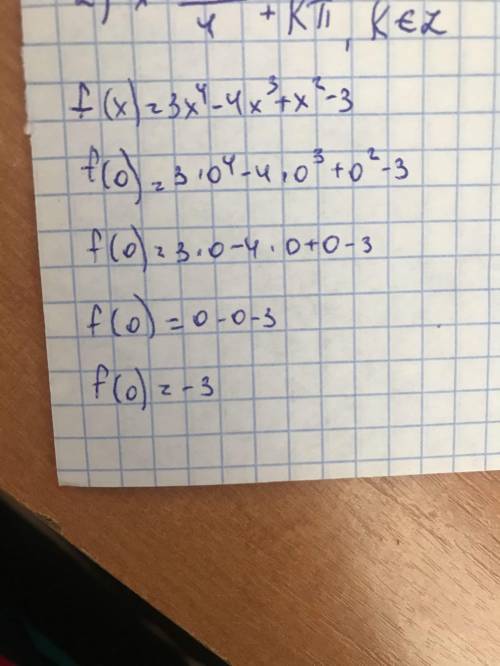 4 + KΠ, K∈Z
f(x)=3x⁴-4x³+x²-3
f(0)=3·0⁴-4·0³+0²-3
f(0)=3·0-4·0+0-3
f(0)=0-0-3
f(0)=-3